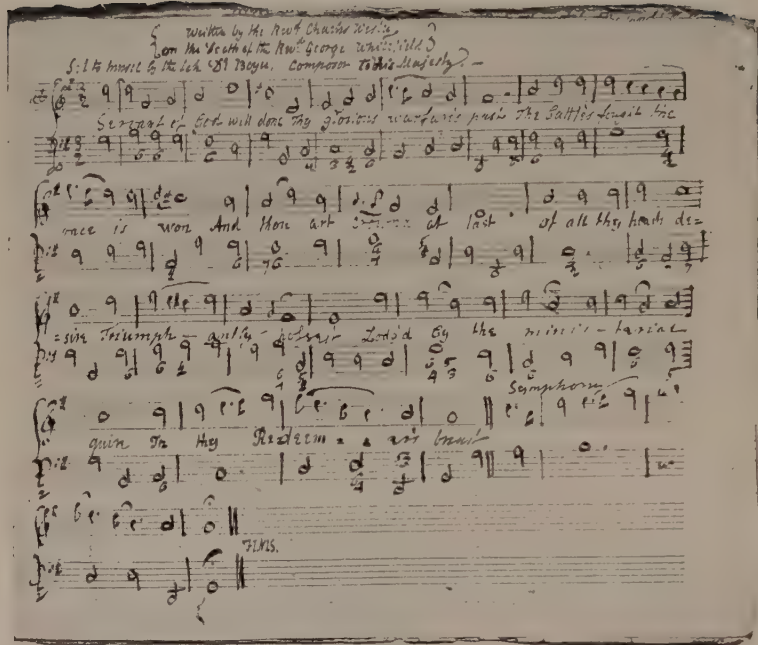 Written by the Revd. Charles Wesley
on the Death of the Revd. George Whitefield
Set to Music by the late Dr. Boyce. Composer to his Majesty.
Servant of God well done Thy glorious warfare's past The battle's fought the
race is won And thou art at last of all thy heart's de=
=sire Triumph - antly Lodg'd By the minis - terial
Symphony
quire In thy Redeem - - er's breast
FINIS.